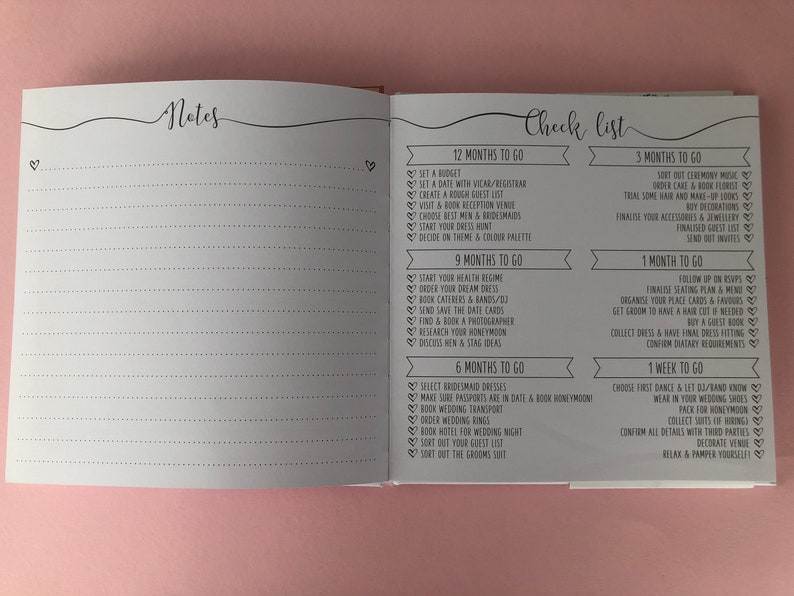 Notes
Check list
12 MONTHS TO GO
SET A BUDGET
SET A DATE WITH VICAR/REGISTRAR
CREATE A ROUGH GUEST LIST
VISIT & BOOK RECEPTION VENUE
CHOOSE BEST MEN & BRIDESMAIDS
START YOUR DRESS HUNT
DECIDE ON THEME & COLOUR PALETTE
9 MONTHS TO GO
START YOUR HEALTH REGIME
ORDER YOUR DREAM DRESS
BOOK CATERERS & BANDS/DJ
SEND SAVE THE DATE CARDS
FIND & BOOK A PHOTOGRAPHER
RESEARCH YOUR HONEYMOON
DISCUSS HEN & STAG IDEAS
6 MONTHS TO GO
SELECT BRIDESMAID DRESSES
MAKE SURE PASSPORTS ARE IN DATE & BOOK HONEYMOON!
BOOK WEDDING TRANSPORT
ORDER WEDDING RINGS
BOOK HOTEL FOR WEDDING NIGHT
SORT OUT YOUR GUEST LIST
SORT OUT THE GROOMS SUIT
3 MONTHS TO GO
SORT OUT CEREMONY MUSIC
ORDER CAKE & BOOK FLORIST
TRIAL SOME HAIR AND MAKE-UP LOOKS
BUY DECORATIONS
FINALISE YOUR ACCESSORIES & JEWELLERY
FINALISED GUEST LIST
SEND OUT INVITES
1 MONTH TO GO
FOLLOW UP ON RSVPS
FINALISE SEATING PLAN & MENU
ORGANISE YOUR PLACE CARDS & FAVOURS
GET GROOM TO HAVE A HAIR CUT IF NEEDED
BUY A GUEST BOOK
COLLECT DRESS & HAVE FINAL DRESS FITTING
CONFIRM DIATARY REQUIREMENTS
1 WEEK TO GO
CHOOSE FIRST DANCE & LET DJ/BAND KNOW
WEAR IN YOUR WEDDING SHOES
PACK FOR HONEYMOON
COLLECT SUITS (IF HIRING)
CONFIRM ALL DETAILS WITH THIRD PARTIES
DECORATE VENUE
RELAX & PAMPER YOURSELF!